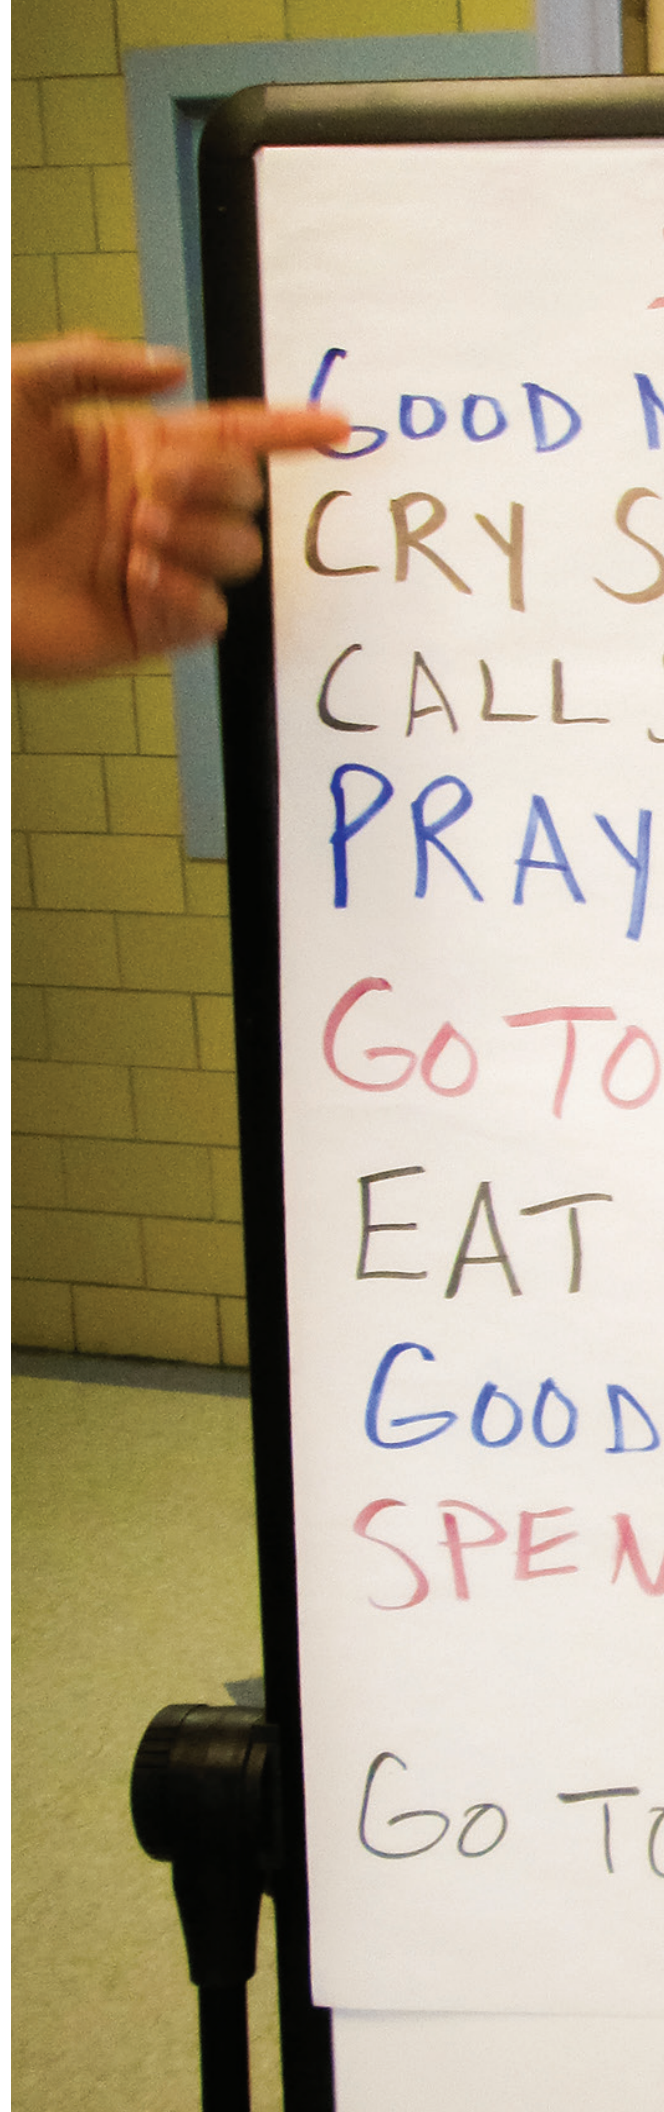 GOOD
CRY
CALL
PRAY
GO TO
EAT
GOOD
SPEN
GO TO